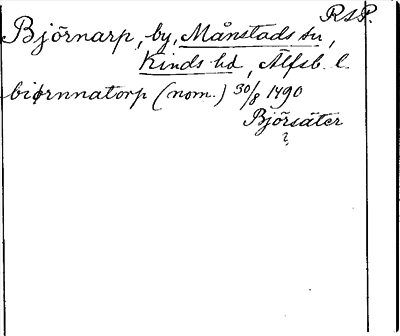 RAP.
Björnarp, by, Månstads sn,
Kinds hd, Älfsb. l.
biørnnatorp (nom.) 30/8 1490
Björsäter
?